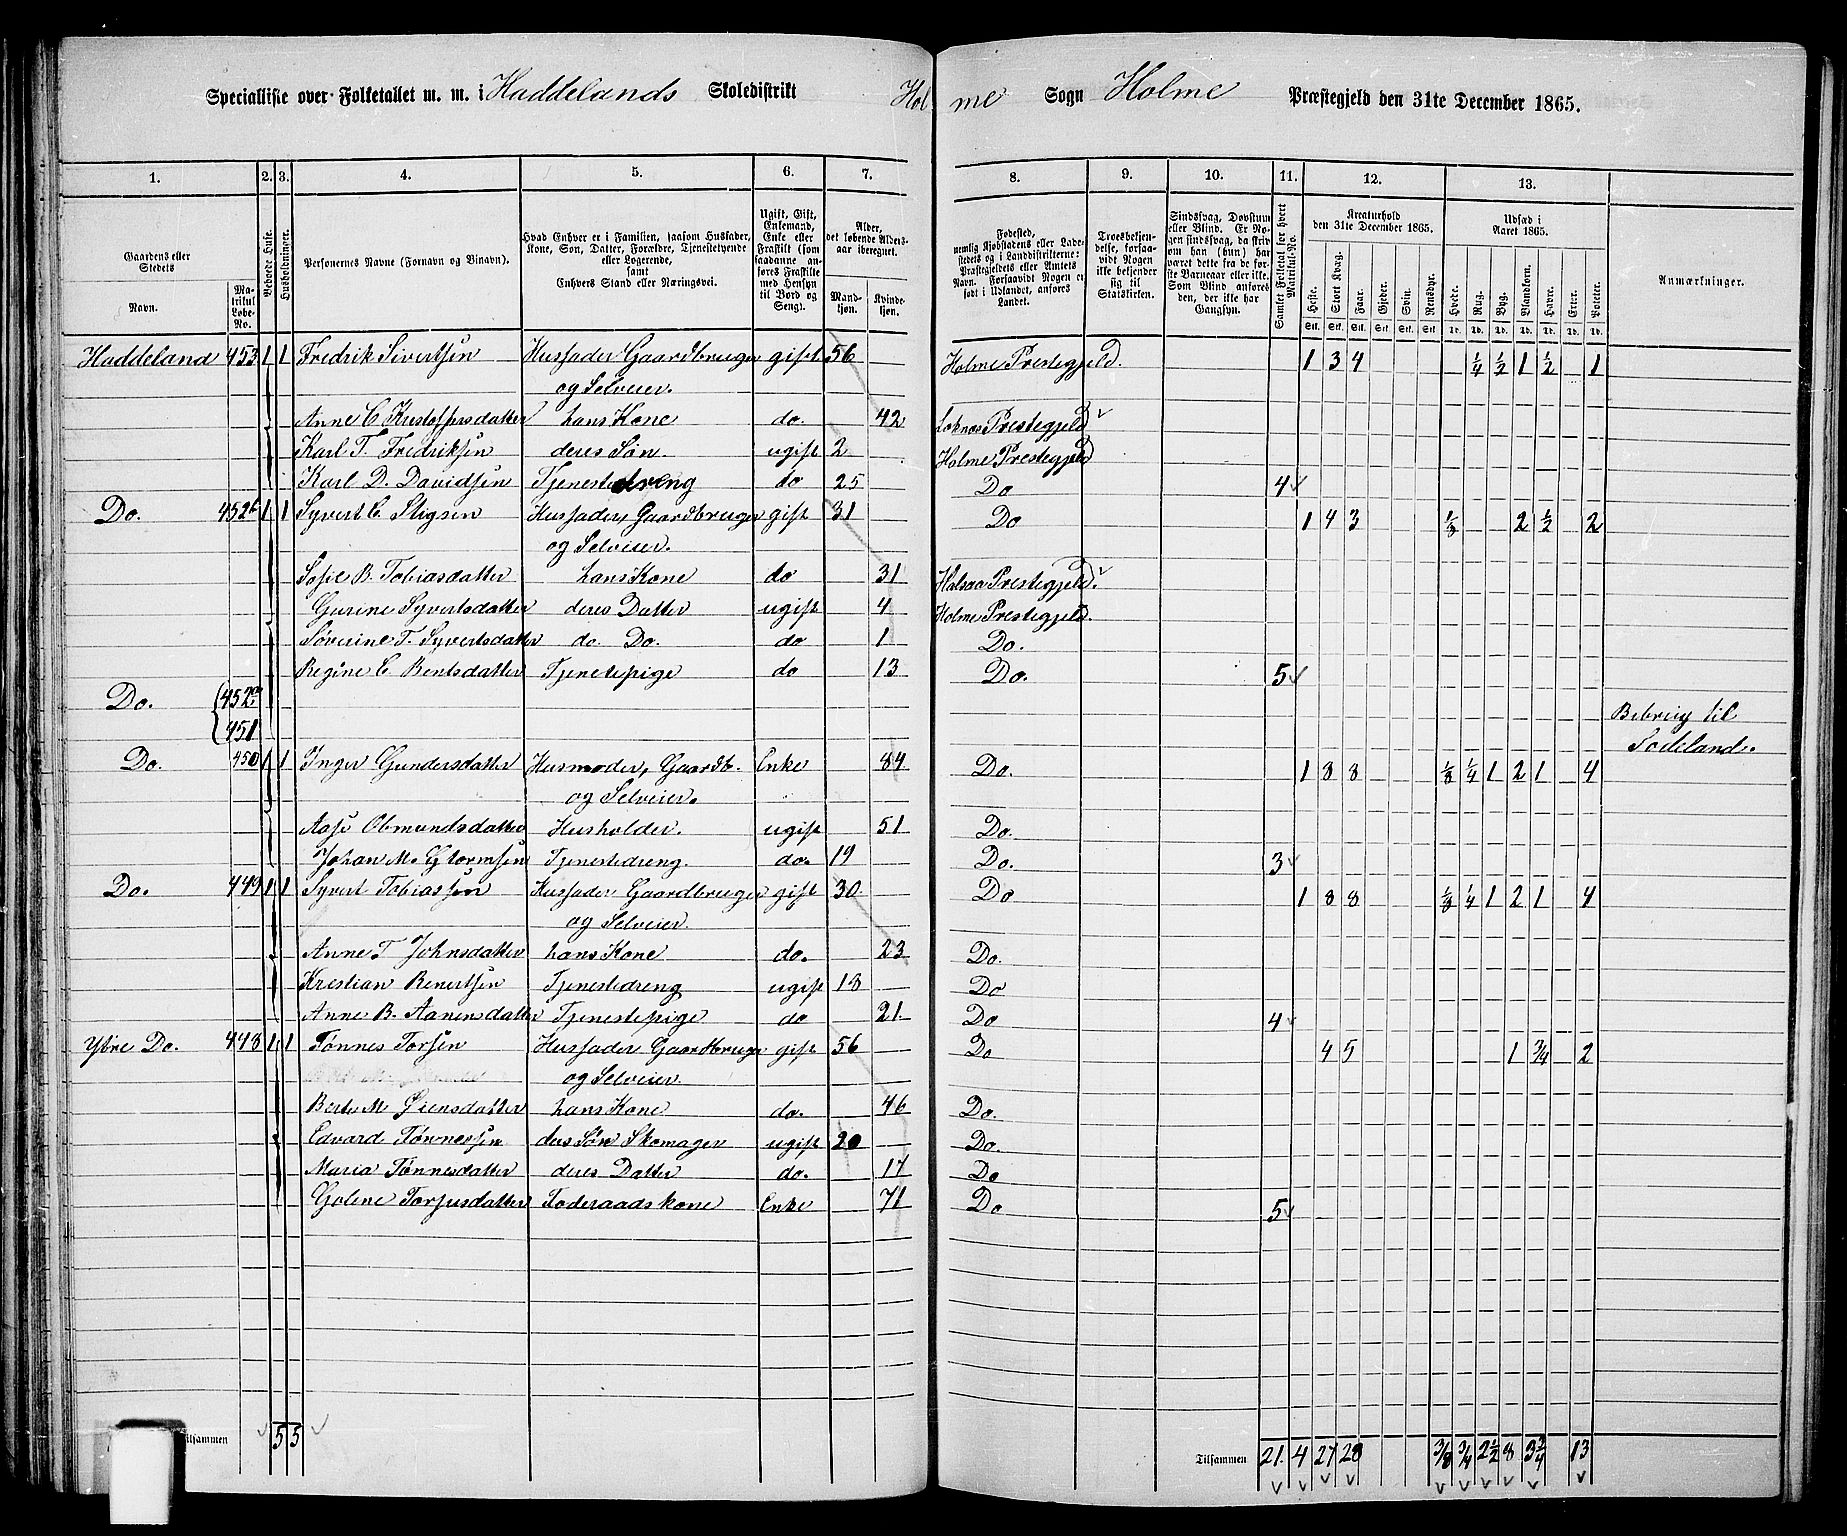 Specialliste over Folketallet m. m. i Haddelands Skoledistrikt Holme Sogn Holme Præstegjeld den 31te December 1865.
1. 2. 3. 4. 5. 6. 7. 8. 9. 10. 11. 12. 13.
Gaardens eller Stedets
Navn.
Matrikul Løbe-No.
Beboede Huse.
Husholdninger.
Personernes Navne (Fornavn og Binavn).
Hvad Enhver er i Familien, saasom Husfader, Kone, Søn, Datter, Forældre, Tjenestetyende eller Logerende, samt Enhvers Stand eller Næringsvei.
Ugift, Gift, Enkemand, Enke eller Fraskilt (som saadanne anføres Fraskilte med Hensyn til Bord og Seng).
Alder, det løbende Aldersaar iberegnet.
Mandkjøn. Kvindekjøn.
Fødested, nemlig Kjøbstadens eller Ladestedets og i Landdistrikterne: Præstegjeldets eller Amtets Navn. Forsaavidt Nogen er født i Udlandet, anføres Landet.
Troesbekjendelse, forsaavidt Nogen ikke bekjender sig til Statskirken.
Sindssvag, Døvstum eller Blind. Er Nogen sindssvag, da skrives om han (hun) har været dette fra de første Barneaar eller ikke. Som Blind anføres den, der ikke har Gangsyn.
Samlet Folketal for hvert Matrikul-No.
Kreaturhold den 31te December 1865.
Heste. Stort Kvæg. Faar. Gjeder. Svin. Rensdyr.
Udsæd i Aaret 1865.
Hvede. Rug. Byg. Blandkorn. Havre. Erter. Poteter.
Anmærkninger.
Haddeland 453 1 1 Fredrik Sivertsen Husfader Gaardbruger gift 56 Holme Prestegjeld. 1 3 4 1/4 1/2 1 1/2 1
og Selveier.
Anne C Kristoffersdatter hans Kone do. 42 Prestegjeld
Karl T. Fredriksen deres Søn. ugift 2 Holme Prestegjeld
Karl D. Davidsen Tjenestedreng do 25 Do 4
Do. 452b 1 1 Syvert C. Stigsen Husfader, Gaardbruger gift 31 Do 1 4 3 1/8 2 1/2 2
og Selveier.
Sofie B. Tobiasdatter hans Kone do 31 Halsaa Prestegjeld.
Gurine Syvertsdatter deres Datter ugift 4 Holme Prestegjeld.
Søverine T. Syvertsdatter do. Do. do 1 Do.
Regine C Bentsdatter Tjenetepige do 13 Do. 5
Do. 452a
451 Bebrug til
Sodeland.
Do. 450 1 1 Inger Gundersdatter Husmoder, Gaardb. Enke 84 Do. 1 8 8 1/8 1/4 1 2 1 4
og Selveier.
Aase Obmundsdatter Husholder. ugift 51 Do.
Johan M. Stormsen Tjenestedreng. do. 19 Do. 3
Do. 449 1 1 Syvert Tobiassen Husfader Gaardbruger gift 30 Do 1 8 8 1/8 1/4 1 2 1 4
og Selveier.
Anne T Johnsdatter hans Kone do. 23 Do.
Kristian Benertsen Tjenestedreng ugift 18 Do
Anne B. Aanensdatter Tjenestepige do 21 Do 4
Ytre Do. 448 1 1 Tønnes Torsen Husfader Gaardbruger gift 56 Do 4 5 1 3/4 2
og Selveier.
Berte M hans Kone do. 46 Do.
Edvard Tønnessen des Søn Skomager ugift 20 Do.
Maria Tønnesdatter deres Datter do. 17 Do
Golene Torjusdatter Foderaadskone Enke 71 Do 5
Tilsammen 5 5 Tilsammen 21. 4 27 28 3/8 3/4 2 1/2 8 3 3/4 13